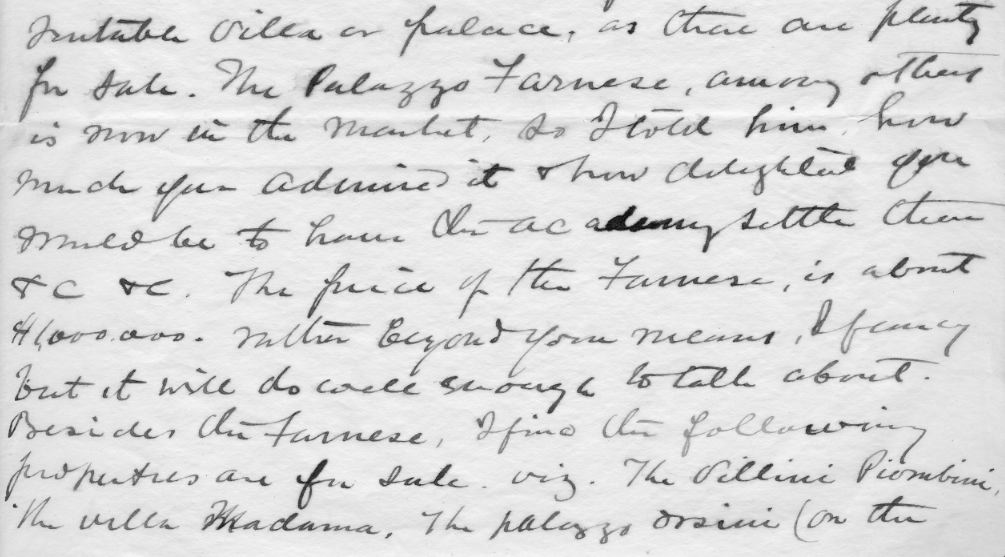 suitable villa or palace, as there are plenty
for sale. The Palazzo Farnese, among others
is now in the market, so I told him, how
much you admired it & how delighted you
would be to have the academy settle there
&c &c. The price of the Farnese, is about
$1,000.000. rather beyond your means, I fancy
but it will do well enough to talk about.
Besides the Farnese, I find the following
properties are for sale. viz. The Villini Piombini,
the villa Madama, The palazzo Orsini (on the